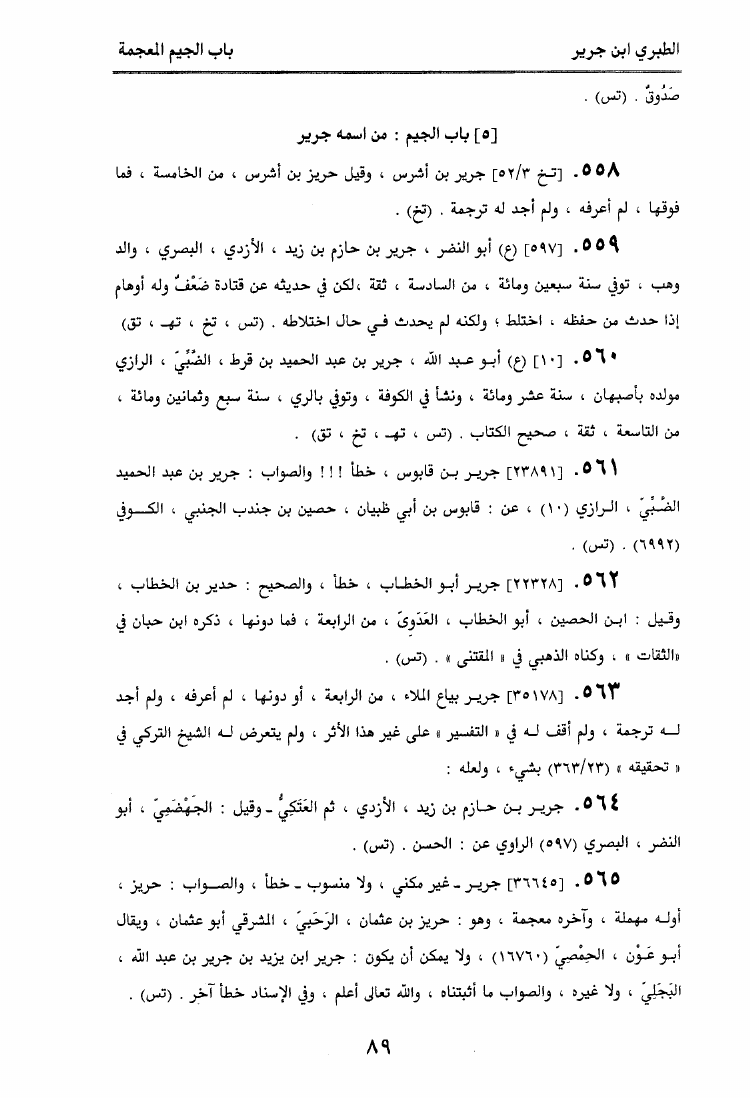 الطبري ابن جرير باب الجيم المعجمة
صَدُوقٌ . (تس) .
[٥] باب الجيم : من اسمه جرير
٥٥٨. [تخ ٥٢/٣] جرير بن أشرس ، وقيل حريز بن أشرس ، من الخامسة ، فما
فوقها ، لم أعرفه ، ولم أجد له ترجمة . (تخ) .
٥٥٩. [٥٩٧] (ع) أبو النضر ، جرير بن حازم بن زيد ، الأزدي ، البصري ، والد
وهب ، توفي سنة سبعين ومائة ، من السادسة ، ثقة ،لكن في حديثه عن قتادة ضَعْفٌ وله أوهام
إذا حدث من حفظه ، اختلط ؛ ولكنه لم يحدث في حال اختلاطه . (تس ، تخ ، تهـ ، تق)
٥٦٠. [١٠] (ع) أبو عبد الله ، جرير بن عبد الحميد بن قرط ، الضَّبِّيّ ، الرازي
مولده بأصبهان ، سنة عشر ومائة ، ونشأ في الكوفة ، وتوفي بالري ، سنة سبع وثمانين ومائة ،
من التاسعة ، ثقة ، صحيح الكتاب . (تس ، تهـ ، تخ ، تق) .
٥٦١. [٢٣٨٩١] جرير بن قابوس ، خطأ ! ! ! والصواب : جرير بن عبد الحميد
الضَّبِّيّ ، الرازي (١٠) ، عن : قابوس بن أبي ظبيان ، حصين بن جندب الجنبي ، الكوفي
(٦٩٩٢) . (تس) .
٥٦٢. [٢٢٣٢٨] جرير أبو الخطاب ، خطأ ، والصحيح : حدير بن الخطاب ،
وقيل : ابن الحصين ، أبو الخطاب ، العَدَوِىّ ، من الرابعة ، فما دونها ، ذكره ابن حبان في
«الثقات » ، وكناه الذهبي في « المقتنى » . (تس) .
٥٦٣. [٣٥١٧٨] جرير بياع الملاء ، من الرابعة ، أو دونها ، لم أعرفه ، ولم أجد
له ترجمة ، ولم أقف له في « التفسير » على غير هذا الأثر ، ولم يتعرض له الشيخ التركي في
« تحقيقه » (٣٦٣/٢٣) بشيء ، ولعله :
٥٦٤. جرير بن حازم بن زيد ، الأزدي ، ثم العَتَكِيُّ ـ وقيل : الجَهْضَمِيّ ، أبو
النضر ، البصري (٥٩٧) الراوي عن : الحسن . (تس) .
٥٦٥. [٣٦٦٤٥] جرير ـ غير مكني ، ولا منسوب ـ خطأ ، والصواب : حريز ،
أوله مهملة ، وآخره معجمة ، وهو : حريز بن عثمان ، الرَحَبيّ ، المشرقي أبو عثمان ، ويقال
أبو عَوْن ، الحِمْصِيّ (١٦٧٦٠) ، ولا يمكن أن يكون : جرير ابن يزيد بن جرير بن عبد الله ،
البَجَلِيّ ، ولا غيره ، والصواب ما أثبتناه ، والله تعالى أعلم ، وفي الإسناد خطأ آخر . (تس) .
٨٩